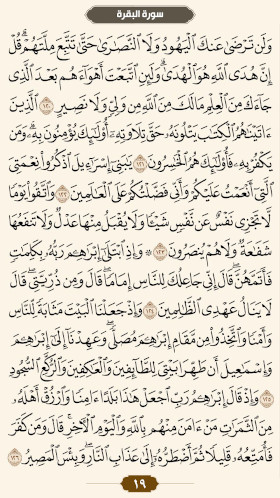 سورة البقرة
وَلَن تَرْضَىٰ عَنكَ ٱلْيَهُودُ وَلَا ٱلنَّصَٰرَىٰ حَتَّىٰ تَتَّبِعَ مِلَّتَهُمْ ۗ قُلْ
إِنَّ هُدَى ٱللَّهِ هُوَ ٱلْهُدَىٰ ۗ وَلَئِنِ ٱتَّبَعْتَ أَهْوَآءَهُم بَعْدَ ٱلَّذِى
جَآءَكَ مِنَ ٱلْعِلْمِ ۙ مَا لَكَ مِنَ ٱللَّهِ مِن وَلِىٍّ وَلَا نَصِيرٍ ١٢٠ ٱلَّذِينَ
ءَاتَيْنَٰهُمُ ٱلْكِتَٰبَ يَتْلُونَهُۥ حَقَّ تِلَاوَتِهِۦٓ أُو۟لَٰٓئِكَ يُؤْمِنُونَ بِهِۦ ۗ وَمَن
يَكْفُرْ بِهِۦ فَأُو۟لَٰٓئِكَ هُمُ ٱلْخَٰسِرُونَ ١٢١ يَٰبَنِىٓ إِسْرَٰٓءِيلَ ٱذْكُرُوا۟ نِعْمَتِىَ
ٱلَّتِىٓ أَنْعَمْتُ عَلَيْكُمْ وَأَنِّى فَضَّلْتُكُمْ عَلَى ٱلْعَٰلَمِينَ ١٢٢ وَٱتَّقُوا۟ يَوْمًا
لَّا تَجْزِى نَفْسٌ عَن نَّفْسٍ شَيْـًٔا وَلَا يُقْبَلُ مِنْهَا عَدْلٌ وَلَا تَنفَعُهَا
شَفَٰعَةٌ وَلَا هُمْ يُنصَرُونَ ١٢٣ ۞ وَإِذِ ٱبْتَلَىٰٓ إِبْرَٰهِۦمَ رَبُّهُۥ بِكَلِمَٰتٍ
فَأَتَمَّهُنَّ ۖ قَالَ إِنِّى جَاعِلُكَ لِلنَّاسِ إِمَامًا ۖ قَالَ وَمِن ذُرِّيَّتِى ۖ قَالَ
لَا يَنَالُ عَهْدِى ٱلظَّٰلِمِينَ ١٢٤ وَإِذْ جَعَلْنَا ٱلْبَيْتَ مَثَابَةً لِّلنَّاسِ
وَأَمْنًا وَٱتَّخِذُوا۟ مِن مَّقَامِ إِبْرَٰهِۦمَ مُصَلًّى ۖ وَعَهِدْنَآ إِلَىٰٓ إِبْرَٰهِۦمَ
وَإِسْمَٰعِيلَ أَن طَهِّرَا بَيْتِىَ لِلطَّآئِفِينَ وَٱلْعَٰكِفِينَ وَٱلرُّكَّعِ ٱلسُّجُودِ
١٢٥ وَإِذْ قَالَ إِبْرَٰهِۦمُ رَبِّ ٱجْعَلْ هَٰذَا بَلَدًا ءَامِنًا وَٱرْزُقْ أَهْلَهُۥ
مِنَ ٱلثَّمَرَٰتِ مَنْ ءَامَنَ مِنْهُم بِٱللَّهِ وَٱلْيَوْمِ ٱلْـَٔاخِرِ ۖ قَالَ وَمَن كَفَرَ
فَأُمَتِّعُهُۥ قَلِيلًا ثُمَّ أَضْطَرُّهُۥٓ إِلَىٰ عَذَابِ ٱلنَّارِ ۖ وَبِئْسَ ٱلْمَصِيرُ ١٢٦
١٩